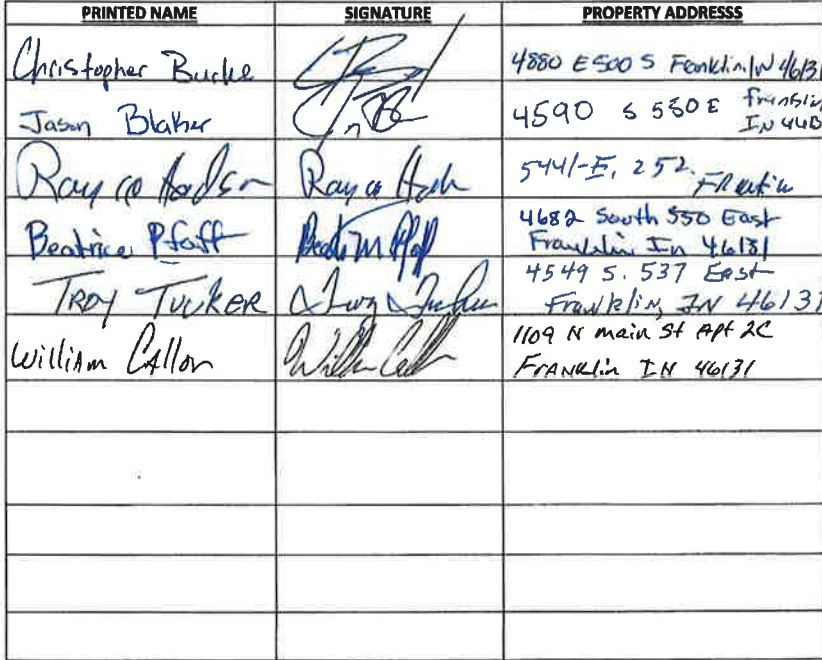 PRINTED NAME SIGNATURE PROPERTY ADDRESSS
Christopher Burke 4880 E 500 S Franklin IN 46131
Jason Blaker 4590 S 550 E Franklin
IN
Ray Hodson Ray 5441-E, 252 Franklin
Beatrice Pfaff Beatr M Pfaff 4682 South 550 East
Franklin In 46131
TROY TUCKER Troy Tucker 4549 S. 537 East
Franklin, IN 46137
William CAllon William Call 1109 N main St Apt 2C
FRANKlin IN 46131